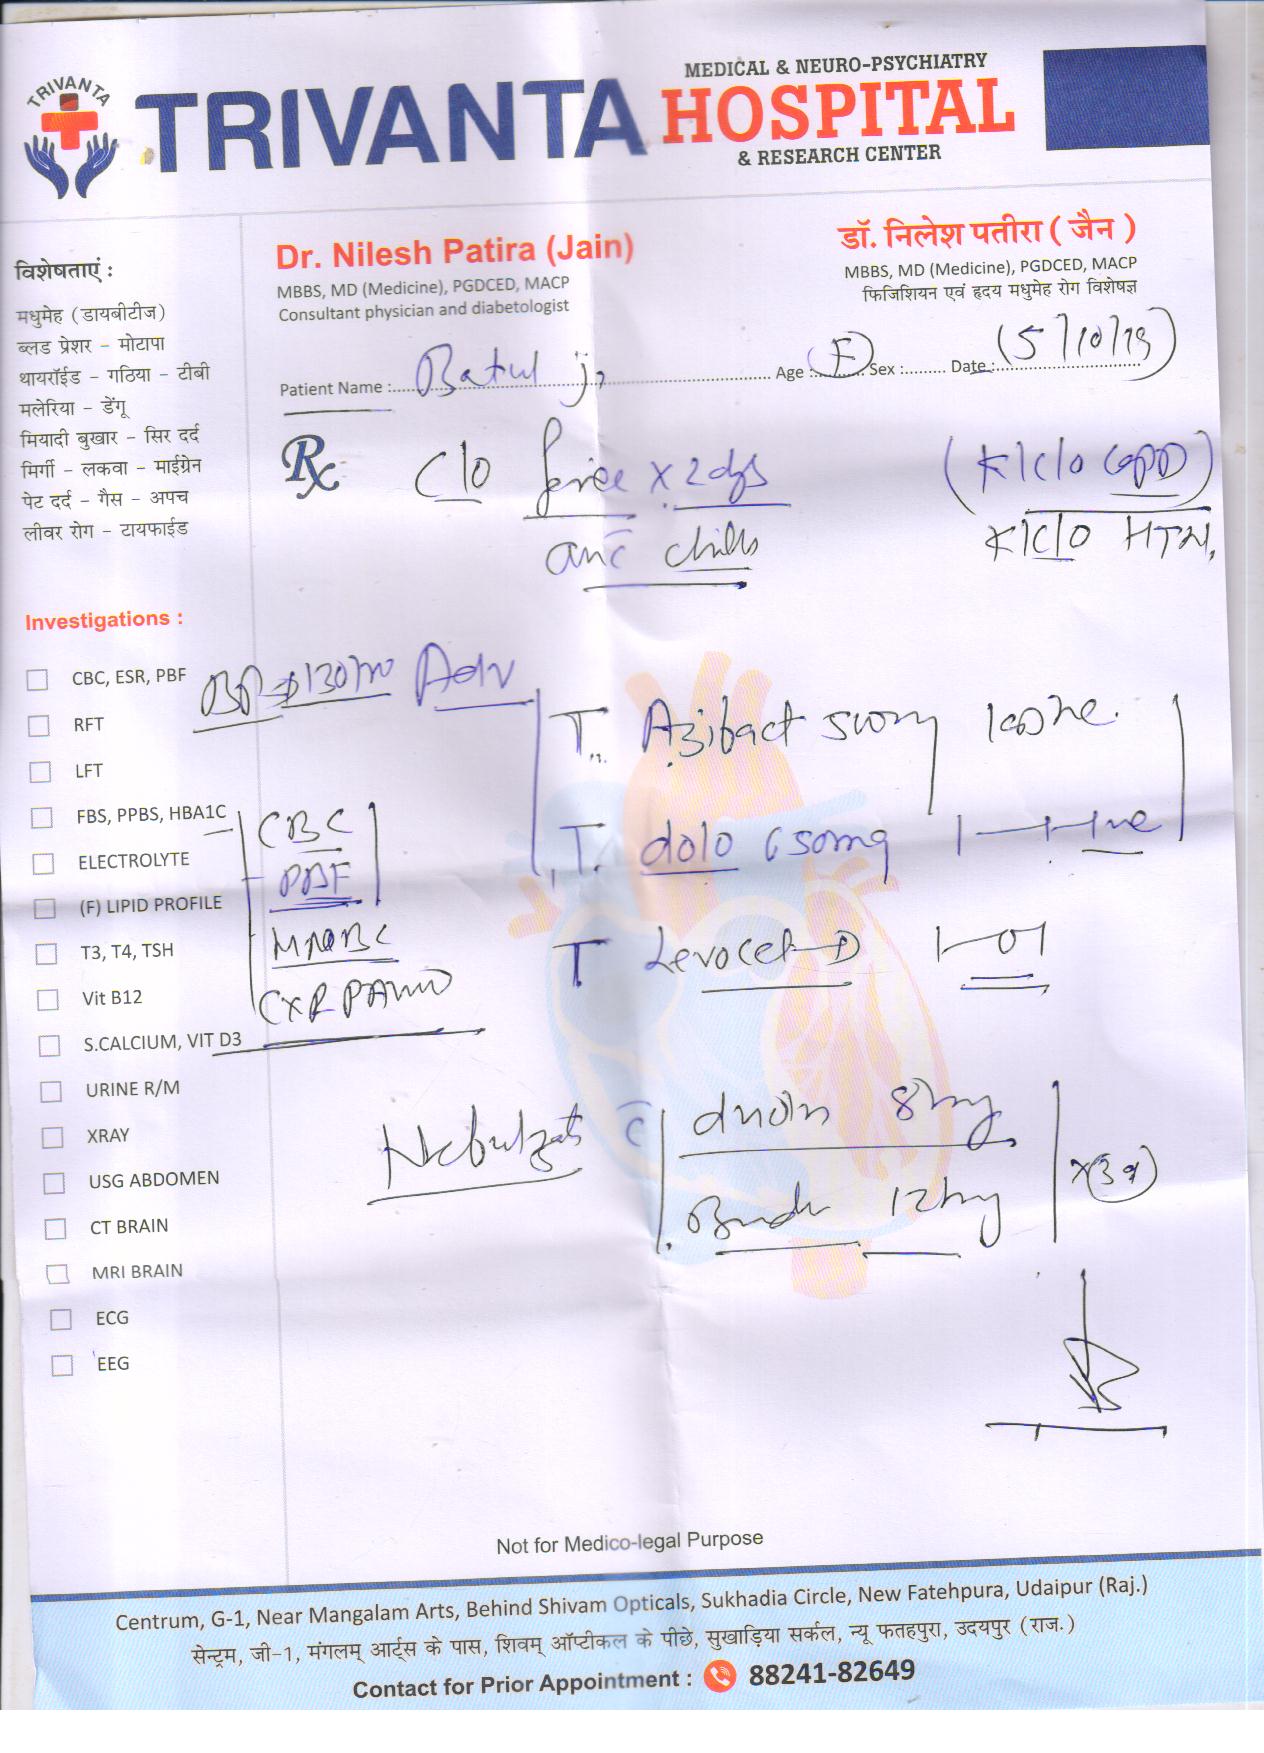 TRIVANTA
TRIVANTA
MEDICAL & NEURO-PSYCHIATRY
HOSPITAL
& RESEARCH CENTER
Dr. Nilesh Patira (Jain)
MBBS, MD (Medicine), PGDCED, MACP
Consultant physician and diabetologist
डॉ. निलेश पतीरा ( जैन )
MBBS, MD (Medicine), PGDCED, MACP
फिजिशियन एवं हृदय मधुमेह रोग विशेषज्ञ
Patient Name : Batul j. Age : (F) Sex : Date : (5/10/19)
विशेषताएं :
मधुमेह (डायबीटीज)
ब्लड प्रेशर - मोटापा
थायरॉईड - गठिया - टीबी
मलेरिया - डेंगू
मियादी बुखार - सिर दर्द
मिर्गी - लकवा - माईग्रेन
पेट दर्द - गैस - अपच
लीवर रोग - टायफाईड
Rx C/O fever x 2 dys
chills
(K/C/O COPD)
K/C/O HTN,
Investigations :
CBC, ESR, PBF
RFT
LFT
FBS, PPBS, HBA1C
ELECTROLYTE
(F) LIPID PROFILE
T3, T4, TSH
Vit B12
S.CALCIUM, VIT D3
URINE R/M
XRAY
USG ABDOMEN
CT BRAIN
MRI BRAIN
ECG
EEG
BP → 130/ Adv
T. Azibact 500mg
T. dolo 650mg
T Levocet-D
CBC
PBF
CXR PA
c̄ duoln 8hrly
12hrly
Not for Medico-legal Purpose
Centrum, G-1, Near Mangalam Arts, Behind Shivam Opticals, Sukhadia Circle, New Fatehpura, Udaipur (Raj.)
सेन्ट्रम, जी-1, मंगलम् आर्ट्स के पास, शिवम् ऑप्टीकल के पीछे, सुखाड़िया सर्कल, न्यू फतहपुरा, उदयपुर (राज.)
Contact for Prior Appointment : 88241-82649